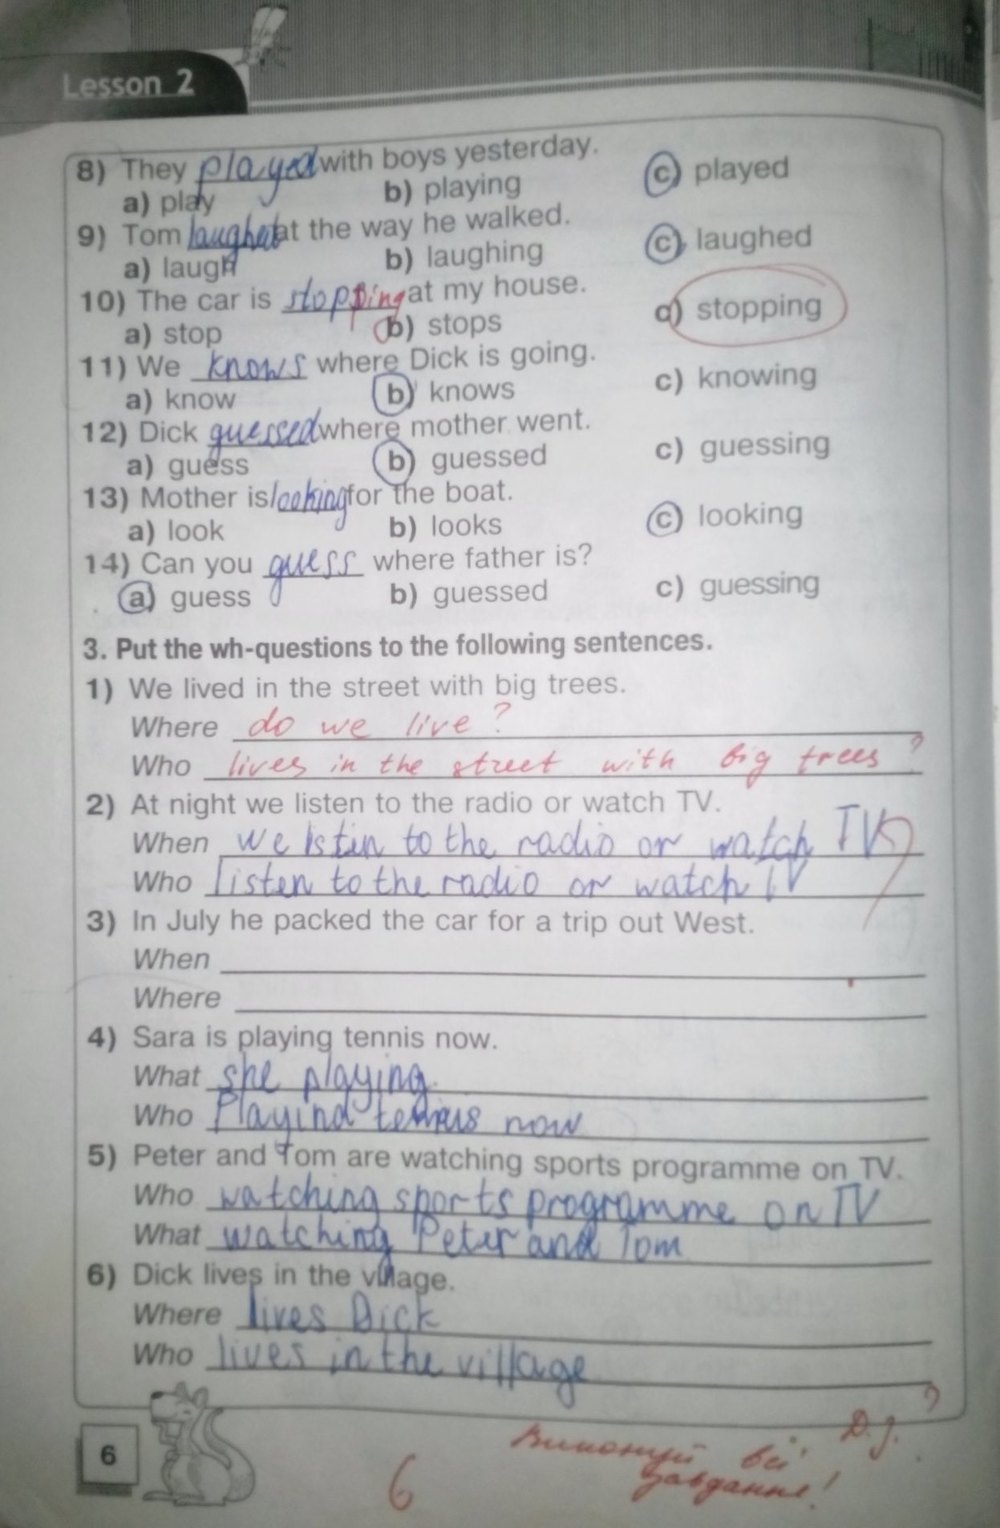 Lesson 2
8) They played with boys yesterday.
a) play b) playing c) played
9) Tom laughed at the way he walked.
a) laugh b) laughing c) laughed
10) The car is stopping at my house.
a) stop b) stops d) stopping
11) We knows where Dick is going.
a) know b) knows c) knowing
12) Dick guessed where mother went.
a) guess b) guessed c) guessing
13) Mother is looking for the boat.
a) look b) looks c) looking
14) Can you guess where father is?
a) guess b) guessed c) guessing
3. Put the wh-questions to the following sentences.
1) We lived in the street with big trees.
Where do we live?
Who lives in the street with big trees?
2) At night we listen to the radio or watch TV.
When we listin to the radio or watch TV
Who listen to the radio or watch TV
3) In July he packed the car for a trip out West.
When
Where
4) Sara is playing tennis now.
What she playing.
Who Playind tennis now
5) Peter and Tom are watching sports programme on TV.
Who watching sports programme on TV
What watching Peter and Tom
6) Dick lives in the village.
Where lives Dick
Who lives in the village
?
6
6
Виконуй всі
завдання!